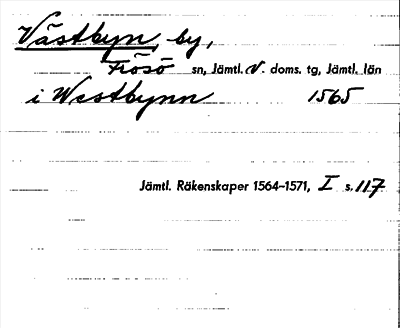 Västbyn, by,
Frösö sn, Jämtl. v. doms. tg, Jämtl. län
i Westbynn 1565
Jämtl. Räkenskaper 1564-1571, I s. 117